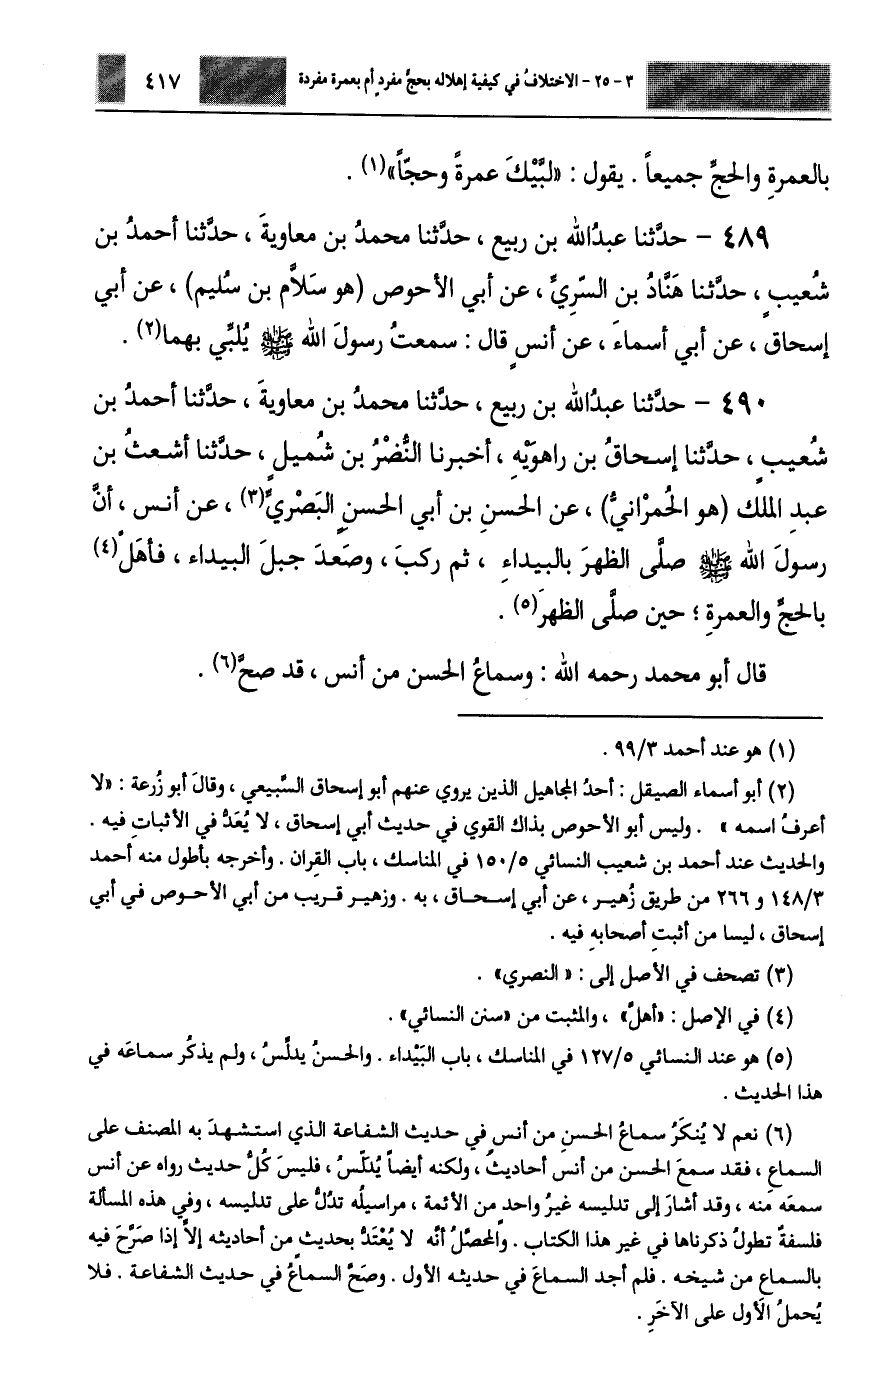 ٣ - ٢٥ - الاختلافُ في كيفية إهلاله بحجٍّ مفردٍ أم بعمرة مفردة ٤١٧
بالعمرةِ والحجِّ جميعاً . يقول : «لبَّيْكَ عمرةً وحجّاً»(١) .
٤٨٩ - حدَّثنا عبدُالله بن ربيع ، حدَّثنا محمدُ بن معاويةَ ، حدَّثنا أحمدُ بن
شُعيبٍ ، حدَّثنا هَنَّادُ بن السّريِّ ، عن أبي الأحوص (هو سَلاَّم بن سُليم) ، عن أبي
إسحاق ، عن أبي أسماءَ ، عن أنسٍ قال : سمعتُ رسولَ الله ﷺ يُلبِّي بهما(٢) .
٤٩٠ - حدَّثنا عبدُالله بن ربيع ، حدَّثنا محمدُ بن معاويةَ ، حدَّثنا أحمدُ بن
شُعيبٍ ، حدَّثنا إسحاقُ بن راهوَيْهِ ، أخبرنا النُّضْرُ بن شُميلٍ ، حدَّثنا أشعثُ بن
عبدِ الملك (هو الحُمرْانيُّ) ، عن الحسنِ بن أبي الحسنِ البَصْريِّ(٣) ، عن أنس ، أنَّ
رسولَ الله ﷺ صلَّى الظهرَ بالبيداءِ ، ثم ركبَ ، وصَعدَ جبلَ البيداء ، فأهَلّ(٤)
بالحجِّ والعمرةِ ؛ حين صلَّى الظهرَ(٥) .
قال أبو محمد رحمه الله : وسماعُ الحسن من أنس ، قد صحَّ(٦) .
(١) هو عند أحمد ٩٩/٣ .
(٢) أبو أسماء الصيقل : أحدُ المجاهيل الذين يروي عنهم أبو إسحاق السَّبيعي ، وقالَ أبو زُرعة : «لا
أعرفُ اسمه » . وليس أبو الأحوص بذاك القوي في حديث أبي إسحاق ، لا يُعَدُّ في الأثباتِ فيه .
والحديث عند أحمد بن شعيب النسائي ١٥٠/٥ في المناسك ، باب القِران . وأخرجه بأطول منه أحمد
١٤٨/٣ و ٢٦٦ من طريق زُهير ، عن أبي إسحاق ، به . وزهير قريب من أبي الأحوص في أبي
إسحاق ، ليسا من أثبتِ أصحابهِ فيه .
(٣) تصحف في الأصل إلى : « النصري» .
(٤) في الإصل : «أهلّ» ، والمثبت من «سنن النسائي» .
(٥) هو عند النسائي ١٢٧/٥ في المناسك ، باب البَيْداء . والحسنُ يدلّسُ ، ولم يذكُر سماعَه في
هذا الحديث .
(٦) نعم لا يُنكَرُ سماعُ الحسنِ من أنسٍ في حديث الشفاعة الذي استشهدَ به المصنف على
السماع ، فقد سمعَ الحسن من أنس أحاديثَ ، ولكنه أيضاً يُدلّسُ ، فليسَ كُلُّ حديث رواه عن أنس
سمعَه منه ، وقد أشارَ إلى تدليسه غيرُ واحدٍ من الأئمة ، مراسيلُه تدُلُّ على تدليسه ، وفي هذه المسألة
فلسفةٌ تطولُ ذكرناها في غير هذا الكتاب . والمُحصّلُ أنّه لا يُعْتَدُّ بحديثٍ من أحاديثه إلاَّ إذا صَرَّحَ فيه
بالسماع من شيخه . فلم أجد السماعَ في حديثه الأول . وصَحَّ السماعُ في حديث الشفاعة . فلا
يُحملُ الأول على الآخَرِ .